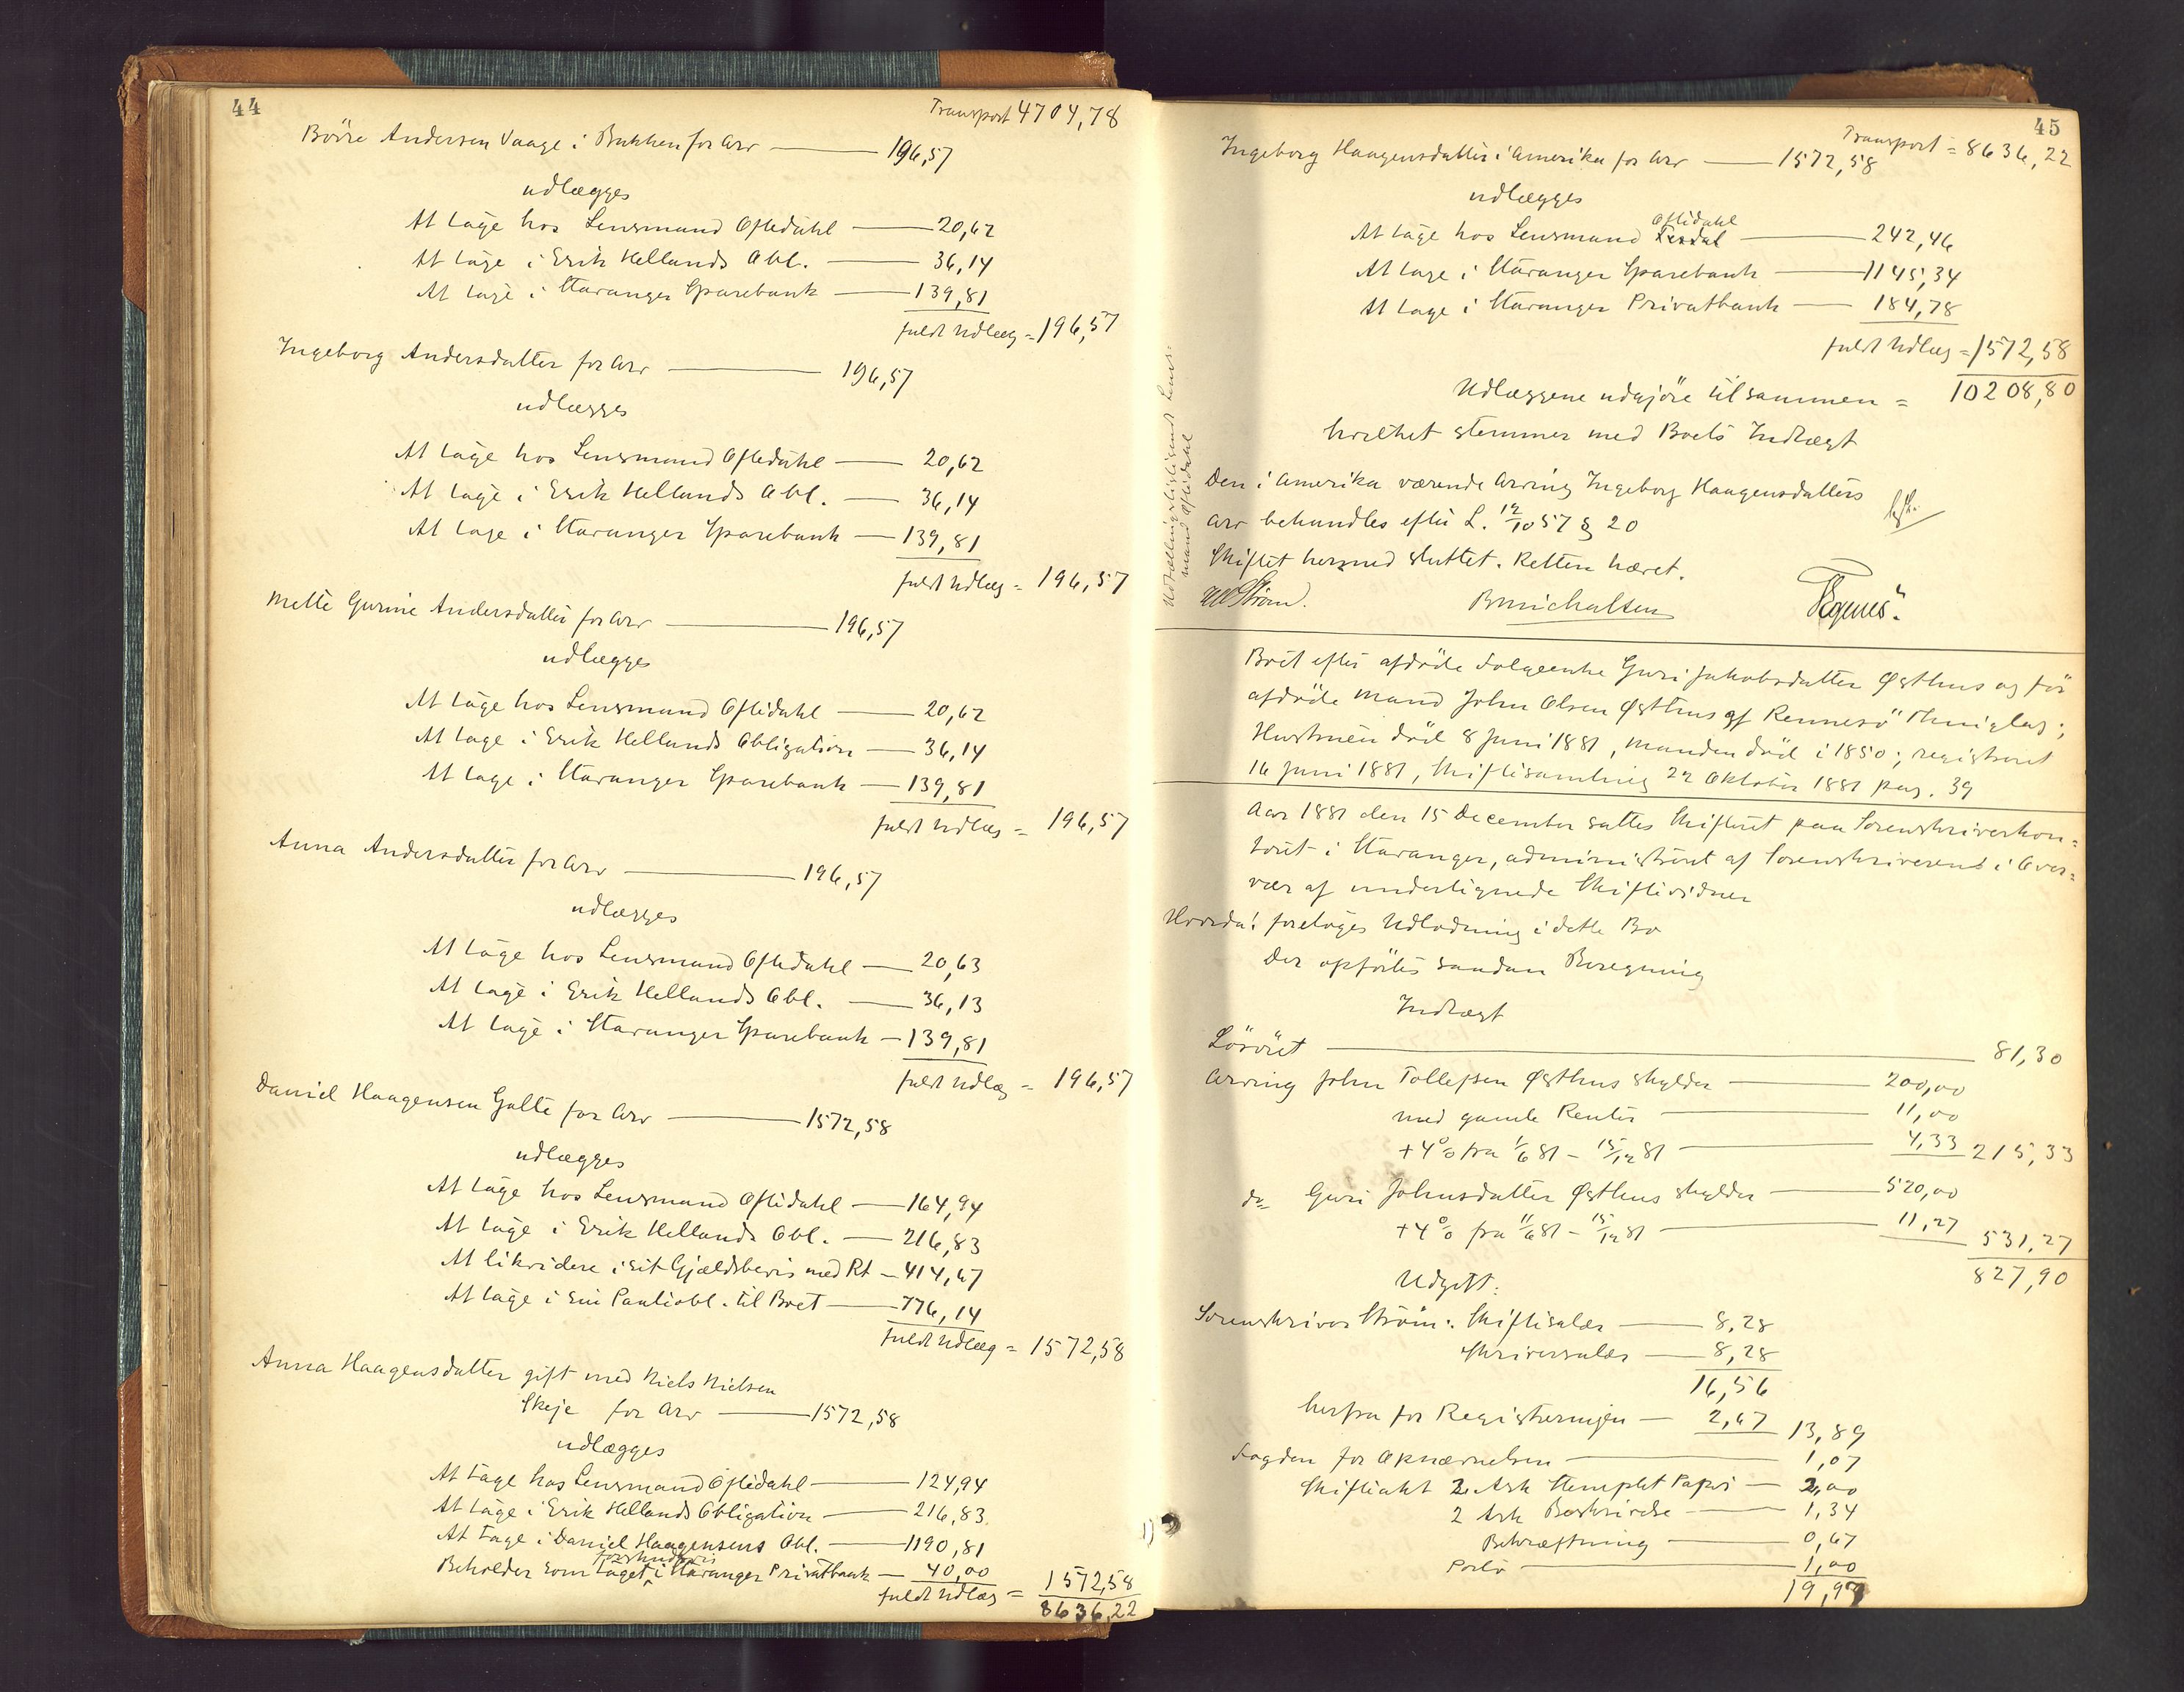 44
Transport 4704,78
Börre Andersen Vaage i Bukken for Arv — 196,57
udlægges
At tage hos Lensmand Oftedahl — 20,62
At tage i Erik Hellands Obl. — 36,14
At tage i Stavanger Sparebank — 139,81
fuldt Udlæg = 196,57
Ingeborg Andersdatter for Arv — 196,57
udlægges
At tage hos Lensmand Oftedahl — 20,62
At tage i Erik Hellands Obl. — 36,14
At tage i Stavanger Sparebank — 139,81
fuldt Udlæg = 196,57
Mette Gurine Andersdatter for Arv — 196,57
udlægges
At tage hos Lensmand Oftedahl — 20,62
At tage i Erik Hellands Obligation — 36,14
At tage i Stavanger Sparebank — 139,81
fuldt Udlæg = 196,57
Anna Andersdatter for Arv — 196,57
udlægges
At tage hos Lensmand Oftedahl — 20,63
At tage i Erik Hellands Obl. — 36,13
At tage i Stavanger Sparebank — 139,81
fuldt Udlæg = 196,57
Daniel Haagensen Galte for Arv — 1572,58
udlægges
At tage hos Lensmand Oftedahl — 164,94
At tage i Erik Hellands Obl. — 216,83
At likvidere i sit Gjældsbevis med Rt — 414,67
At tage i sin Panteobl. til Boet — 776,14
fuldt Udlæg = 1572,58
Anna Haagensdatter gift med Niels Nielsen
Skeje for Arv — 1572,58
udlægges
At tage hos Lensmand Oftedahl — 124,94
At tage i Erik Hellands Obligation — 216,83
At tage i Daniel Haagensens Obl. — 1190,81
Forskudsvis
Beholder som taget i Stavanger Privatbank — 40,00
fuldt Udlæg = 1572,58
8636,22
45
Transport = 8636,22
Ingeborg Haagensdatter i Amerika for Arv — 1572,58
udlægges
Oftedahl
At tage hos Lensmand Tesdal — 242,46
At tage i Stavanger Sparebank — 1145,34
At tage i Stavanger Privatbank — 184,78
fuldt Udlæg = 1572,58
Udlæggene udgjöre tilsammen = 10208,80
hvilket stemmer med Boets Indtægt
Den i Amerika værende Arving Ingeborg Haagensdatters
Arv behandles efter L. 12/10 57 § 20
Skiftet hermed sluttet. Retten hævet.
W Ström. B Michalsen
mand Oftedahl
Boet efter afdöde Folgeenke Guri Jakobsdatter Østhus og för
afdöde Mand John Olsen Østhus af Rennesö Thinglag;
Hustruen död 8 Juni 1881, Manden död i 1850; registreret
16 Juni 1881, Skiftesamling 22 Oktober 1881 pag. 39
Aar 1881 den 15 December sattes Skifteret paa Sorenskriverkon=
toret i Stavanger, administreret af Sorenskriveren i Over=
vær af undertegnede Skiftevidner
Hvorda: foretoges Udlodning i dette Bo
Der opförtes saadan Beregning
Indtægt
Lösöret — 81,30
Arving John Tollefsen Østhus skylder — 200,00
med gamle Renter — 11,00
+ 4% fra 1/6 81 – 15/12 81 — 4,33 215,33
do Guri Johnsdatter Østhus skylder — 520,00
+ 4% fra 11/6 81 – 15/12 81 — 11,27 531,27
827,90
Udgift:
Sorenskriver Ström: Skiftesalær — 8,28
Skriversalær — 8,28
16,56
herfra for Registreringen — 2,67 13,89
Fogden for Aknærnelsen — 1,07
Skifteakt 2 Ark stemplet Papir — 2,00
2 Ark Beskrivelse — 1,34
Bekræftning — 0,67
Porto — 1,00
19,97